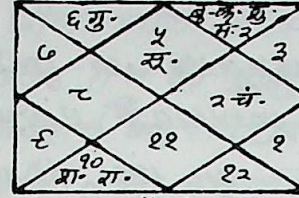 ६ गु॰
बु॰ के॰ शु॰
मं॰ ४
७
५
सू॰
३
८
२ चं॰
९
११
१
१०
श॰ रा॰
१२